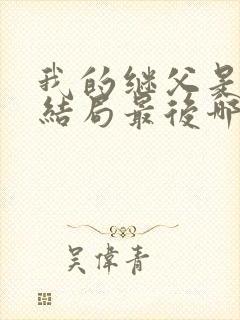 我的继父是
结局最後哪
吴偉青